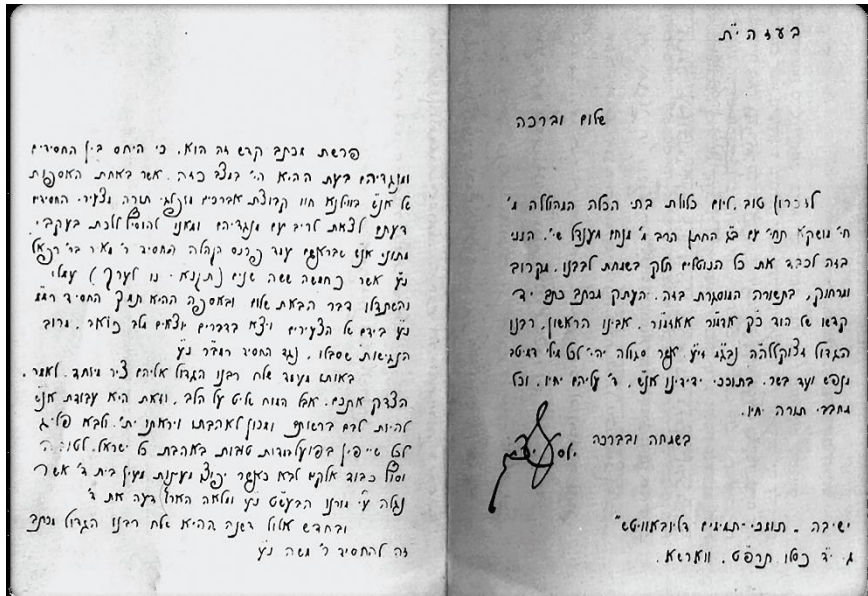 בעזהי"ת
שלום וברכה
לזכרון טוב, ליום כלולת בתי הכלה המהוללה מ'
חי' מושקא תחי' עם ב"ג החתן הרב מ' מנחם מענדל שי', הנני
בזה לכבד את כל הנוטלים חלק בשמחת לבבנו, מקרוב
ומרחוק, בתשורה המוסגרת בזה. העתק מכתב כתב יד
קדשו של הוד כ"ק אדמו"ר אאזמו"ר, אבינו הראשון, רבנו
הגדול זצוקללה"ה נבג"מ זי"ע אשר סגולה יהי' לכל מילי דמיטב
מנפש ועד בשר, בתוככי ידידינו אנ"ש, ד' עליהם יחיו, וכל
מחבבי תורה יחיו.
בשמחה ובברכה
יוסף יצחק
ישיבה - תומכי-תמימים דליובאוויטש"
ג. י"ד כסלו תרפ"ט. ווארשא.
פרשת מכתב קדש זה הוא, כי היחס בין החסידים
ומנגדיהם בעת ההיא הי' במצב כזה, אשר באחת האספות
של אנ"ש בווילנא חוו קבוצת אברכים מופלגי תורה מצעירי החסידים
דעתם לצאת לריב עם מנגדיהם ומאנו להוסיף ללכת בעקבי
מתוני אנ"ש שבראשם עמד פרנס הקהלה החסיד ר' מאיר בר' רפאל
נ"ע אשר כחמשה ששה שנים (תקנ"א - נו לערך) עמלו
והשתדלו דבר הבאת שלום ובאספה ההיא תמך החסיד רמ"מ
נ"ע בידם של הצעירים ויצא בדברים יוצאים מלב כואב, מרוב
הנגישות שסבלו, נגד החסיד רמב"ר נ"ע
באותו מעמד שלח רבנו הגדול אליהם ציר מיוחד, לאמר,
הצדק אתכם, אבל המוח שליט על הלב, וזאת היא עבודת אנ"ש
להיות לבם ברשותם ומכון לאהבתו ויראתו ית', ולבא פליג
לכל שייפין בפועל עבודות טובות באהבת כל ישראל, לטובה
וסוף כבוד אלקים לבא כאשר יפוצו מעינות מעין בית ד' אשר
נגלה ע"י מורנו הבעש"ט נ"ע ומלאה הארץ דעה את ד'
ובחדש אלול דשנה ההיא שלח רבנו הגדול מכתב
זה להחסיד ר' משה נ"ע